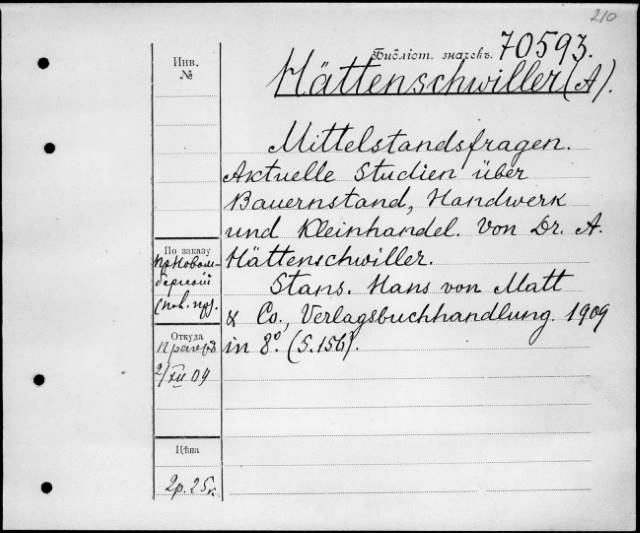 210
Инв.
№
Библіот. значекъ. 70593.
Hättenschwiller (A).
Mittelstandsfragen.
Aktuelle Studien über
Bauernstand, Handwerk
und Kleinhandel. Von Dr. A.
Hättenschwiller.
Stans. Hans von Matt
& Co., Verlagsbuchhandlung. 1909
in 8°. (S. 156).
По заказу
Откуда
2/XII 09
Цѣна
2р. 25к